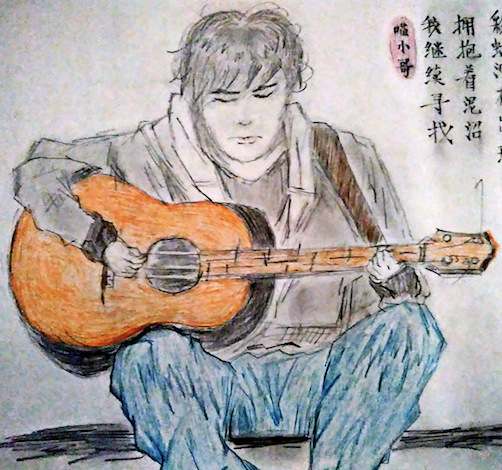 拥抱着泥沼
我继续寻找
喵小哥